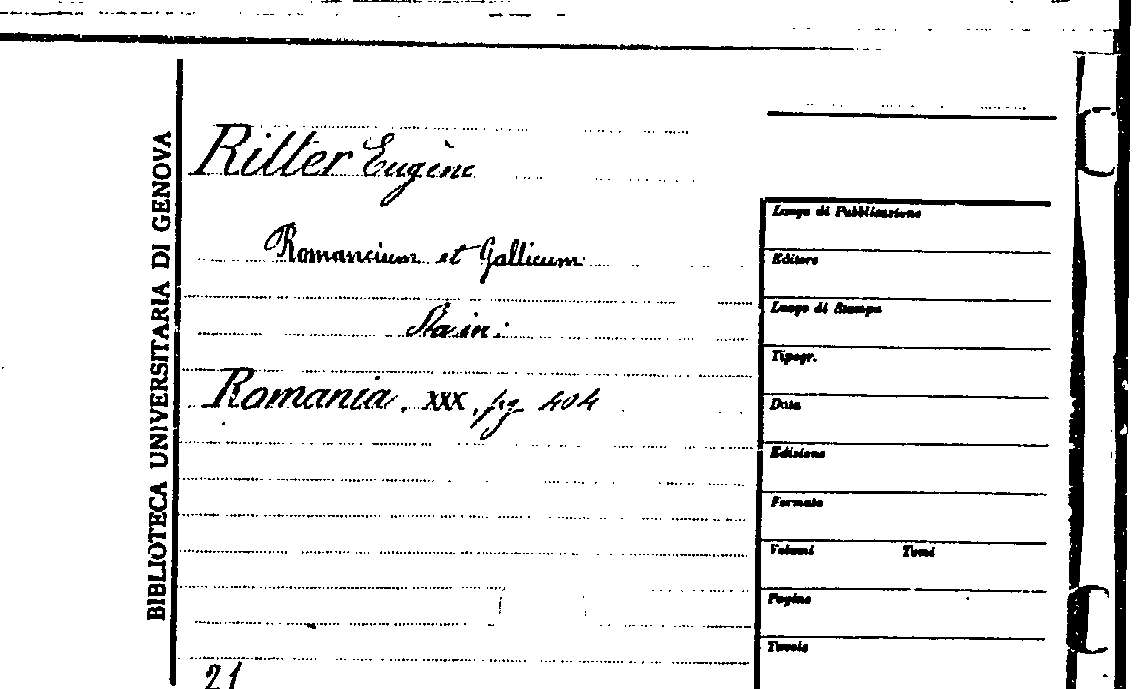 BIBLIOTECA UNIVERSITARIA DI GENOVA
Ritter Eugène
Romancium et Gallicum
Sta in:
Romania, XXX, pg 404
21
Luogo di Pubblicazione
Editore
Luogo di Stampa
Tipogr.
Data
Edizione
Formato
Volumi Tomi
Pagine
Tavole